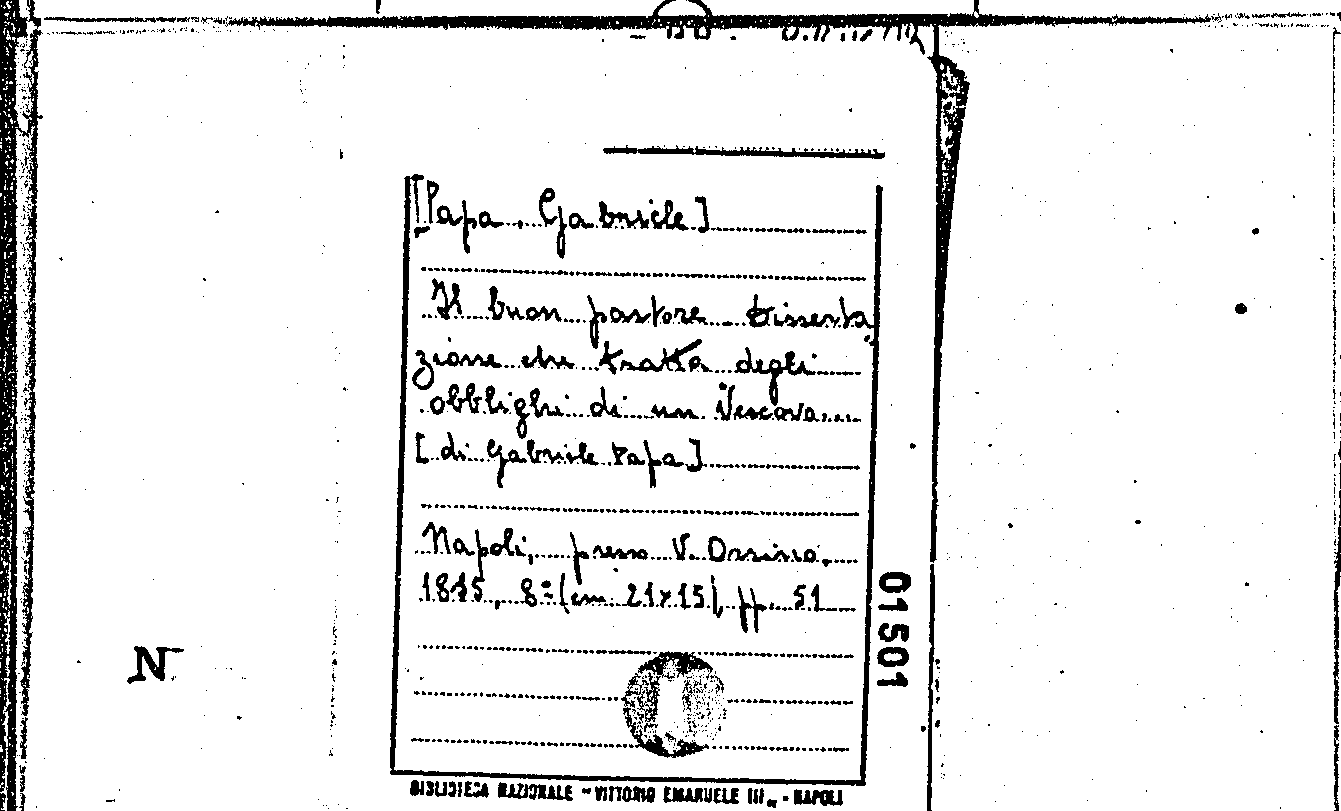 [Papa, Gabriele]
Il buon pastore. Disserta
zione che tratta degli
obblighi di un Vescovo....
[di Gabriele Papa]
Napoli, presso V. Orsino,
1815, 8º (cm. 21x15), pp. 51
01501
N
BIBLIOTECA NAZIONALE "VITTORIO EMANUELE III" - NAPOLI